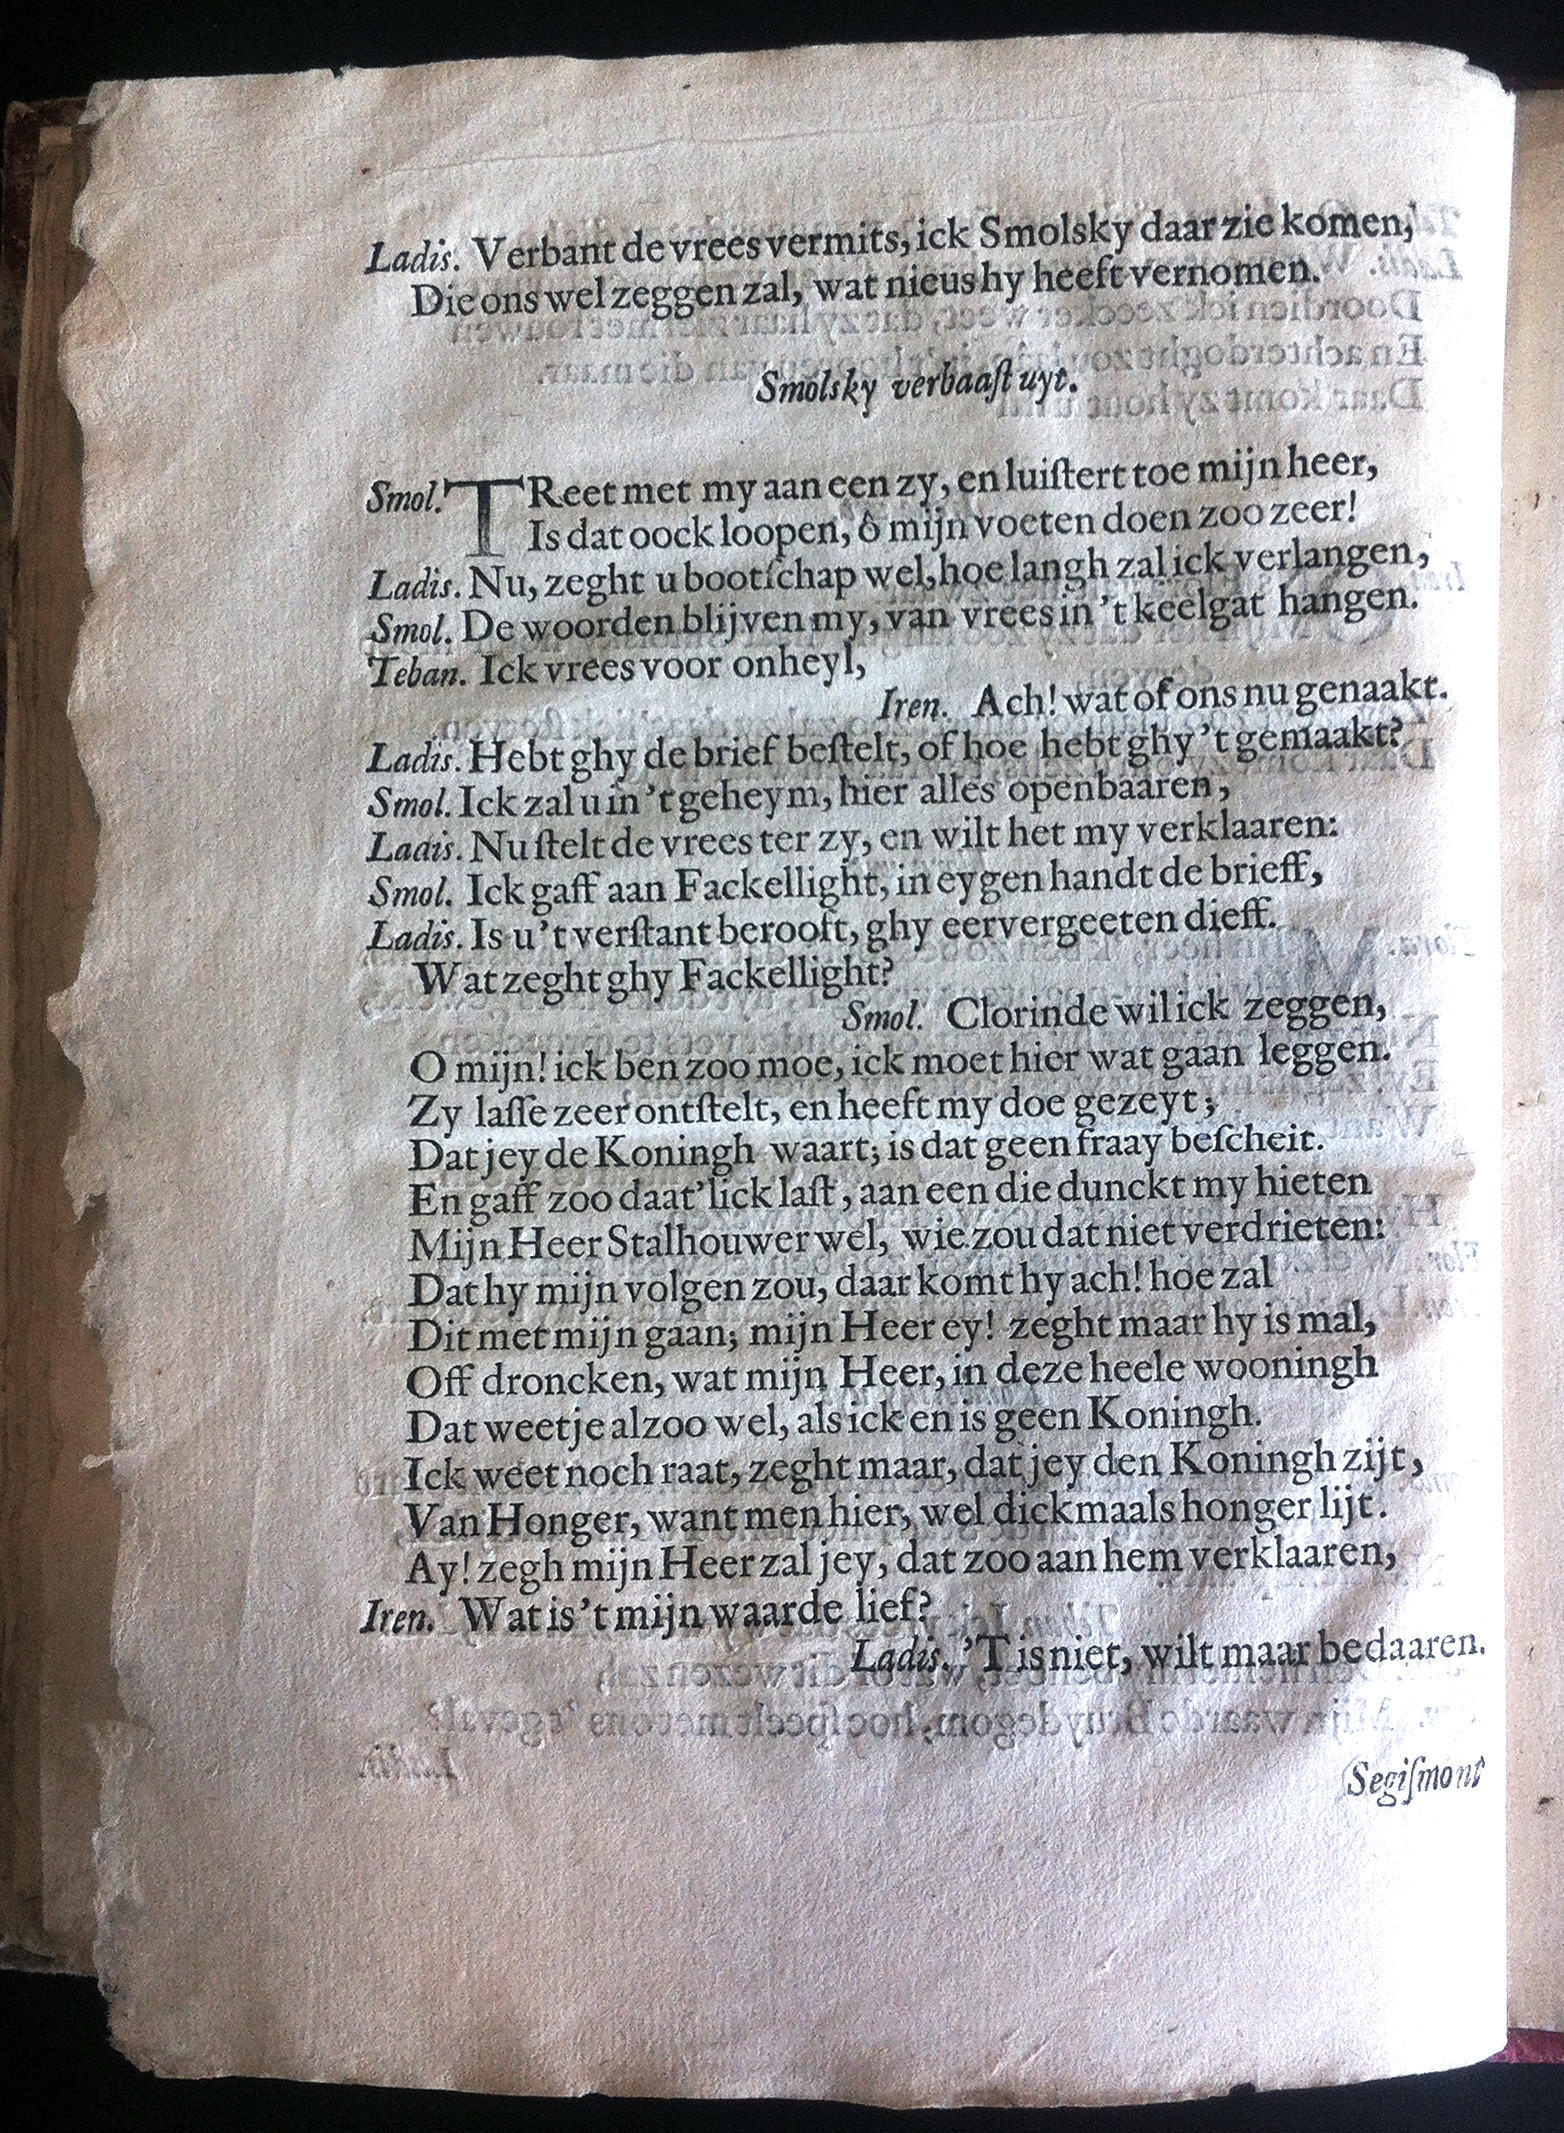 Ladis. Verbant de vrees vermits, ick Smolsky daar zie komen,
Die ons wel zeggen zal, wat nieus hy heeft vernomen.
Smolsky verbaaſt uyt.
Smol. TReet met my aan een zy, en luiſtert toe mijn heer,
Is dat oock loopen, ô mijn voeten doen zoo zeer!
Ladis. Nu, zeght u bootſchap wel, hoe langh zal ick verlangen,
Smol. De woorden blijven my, van vrees in 't keelgat hangen.
Teban. Ick vrees voor onheyl,
Iren. Ach! wat of ons nu genaakt.
Ladis. Hebt ghy de brief beſtelt, of hoe hebt ghy 't gemaakt?
Smol. Ick zal u in 't geheym, hier alles openbaaren,
Ladis. Nu ſtelt de vrees ter zy, en wilt het my verklaaren:
Smol. Ick gaff aan Fackellight, in eygen handt de brieff,
Ladis. Is u 't verſtant berooft, ghy eervergeeten dieff.
Wat zeght ghy Fackellight?
Smol. Clorinde wil ick zeggen,
O mijn! ick ben zoo moe, ick moet hier wat gaan leggen.
Zy laſſe zeer ontſtelt, en heeft my doe gezeyt;
Dat jey de Koningh waart; is dat geen fraay beſcheit.
En gaff zoo daat'lick laſt, aan een die dunckt my hieten
Mijn Heer Stalhouwer wel, wie zou dat niet verdrieten:
Dat hy mijn volgen zou, daar komt hy ach! hoe zal
Dit met mijn gaan; mijn Heer ey! zeght maar hy is mal,
Off droncken, wat mijn Heer, in deze heele wooningh
Dat weetje alzoo wel, als ick en is geen Koningh.
Ick weet noch raat, zeght maar, dat jey den Koningh zijt,
Van Honger, want men hier, wel dickmaals honger lijt.
Ay! zegh mijn Heer zal jey, dat zoo aan hem verklaaren,
Iren. Wat is 't mijn waarde lief?
Ladis. 'T is niet, wilt maar bedaaren.
Segiſmont